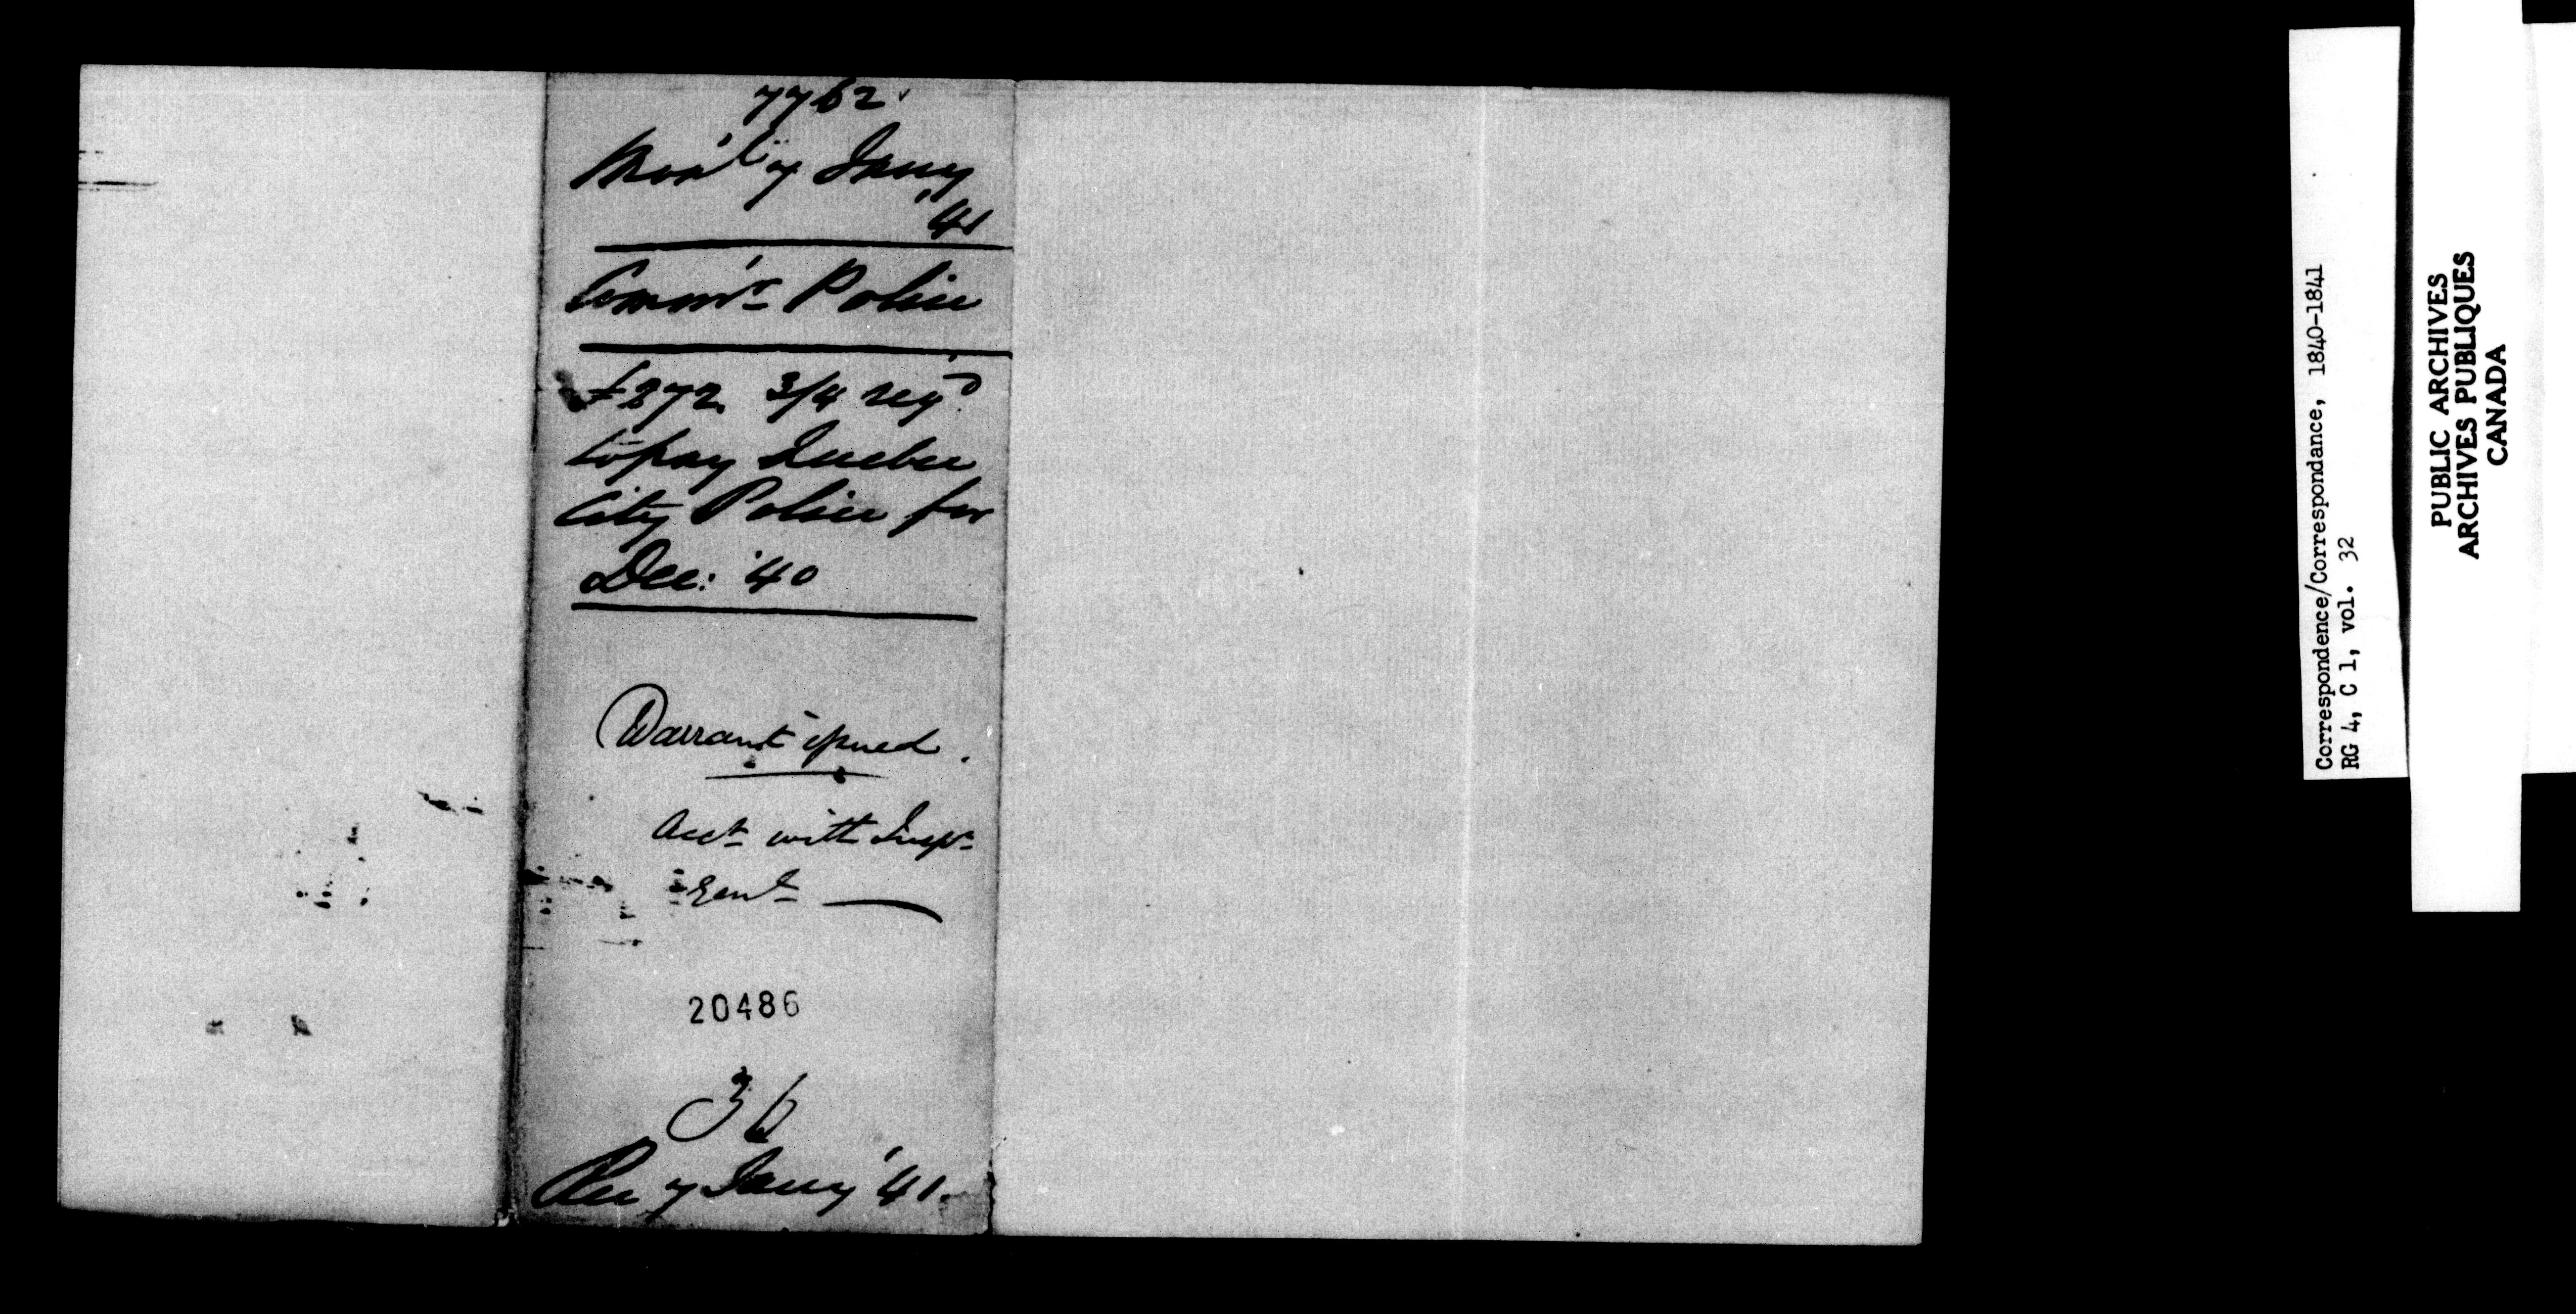 7762
Mon'l 7 Jany
'41
Comm'r Police
£272. 3/4 reqd
to pay Quebec
City Police for
Dec: '40
Warrant issued.
Acct with Inspr
Genl
20486
36
Rec 7 Jany '41.
Correspondence/Correspondance, 1840-1841
RG 4, C 1, vol. 32
PUBLIC ARCHIVES
ARCHIVES PUBLIQUES
CANADA